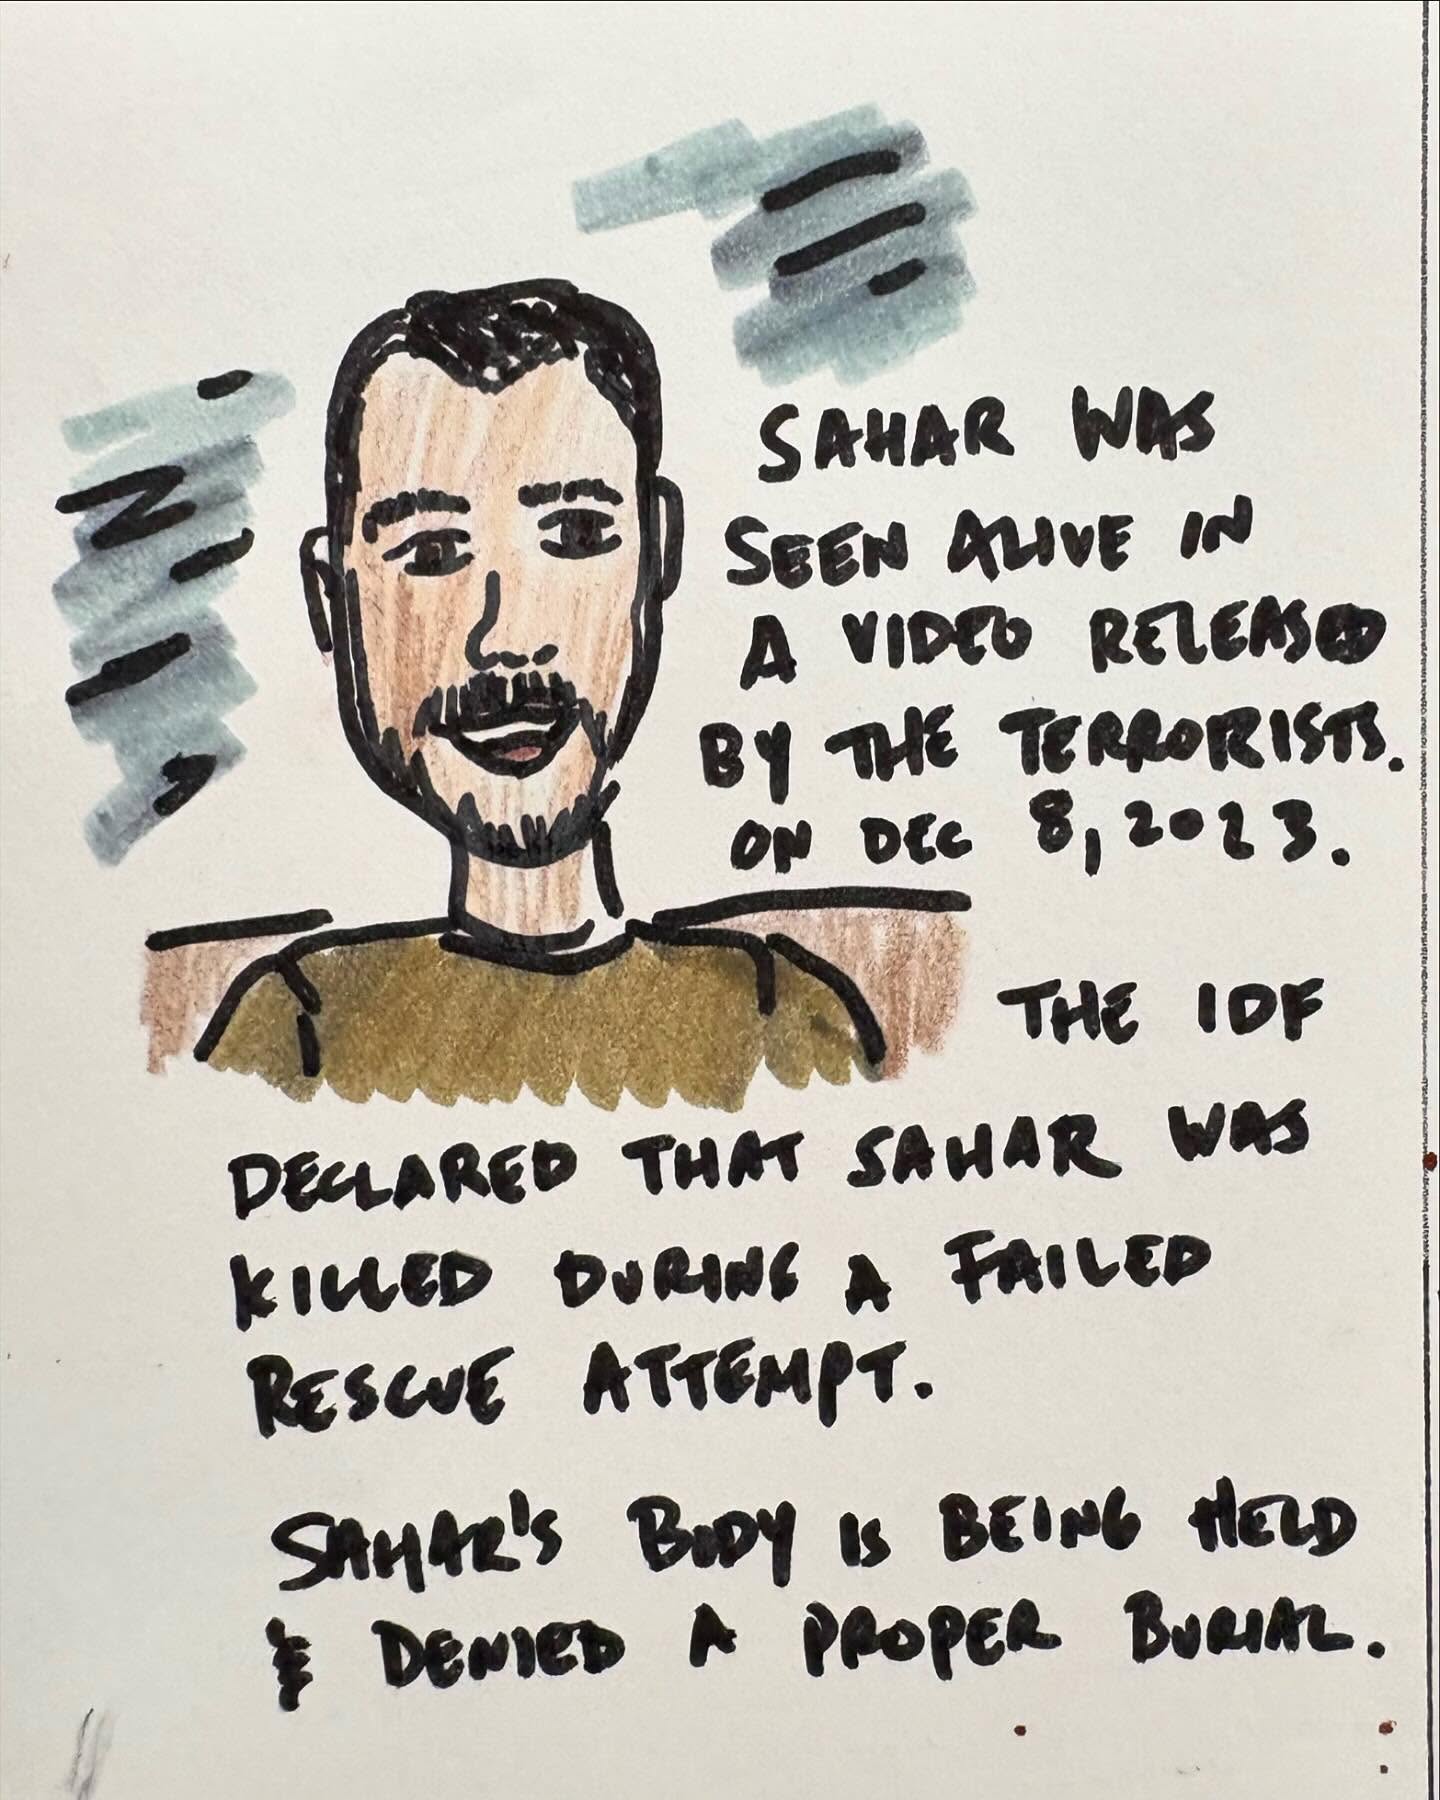 SAHAR WAS
SEEN ALIVE IN
A VIDEO RELEASED
BY THE TERRORISTS.
ON DEC 8, 2023.
THE IDF
DECLARED THAT SAHAR WAS
KILLED DURING A FAILED
RESCUE ATTEMPT.
SAHAR'S BODY IS BEING HELD
& DENIED A PROPER BURIAL.